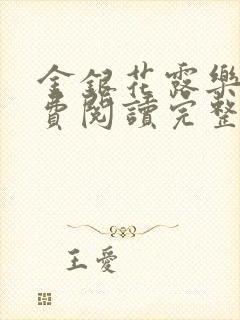 金銀花露樂
費閱讀完整
王愛